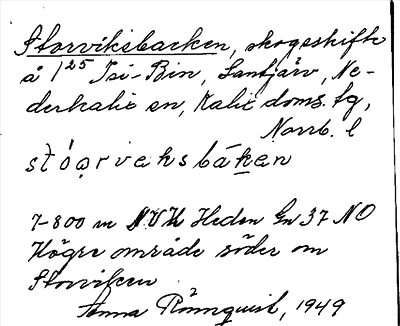 Storviksbacken, skogsskifte
å 1²⁵ Tsi-Bin, Santjärv, Ne-
derkalix sn, Kalix doms. tg,
Norrb. l
stóorveksbáken
7-800 m NVH Heden Gn 37 NO
Högre område söder om
Storviken
Anna Rönnquist, 1949